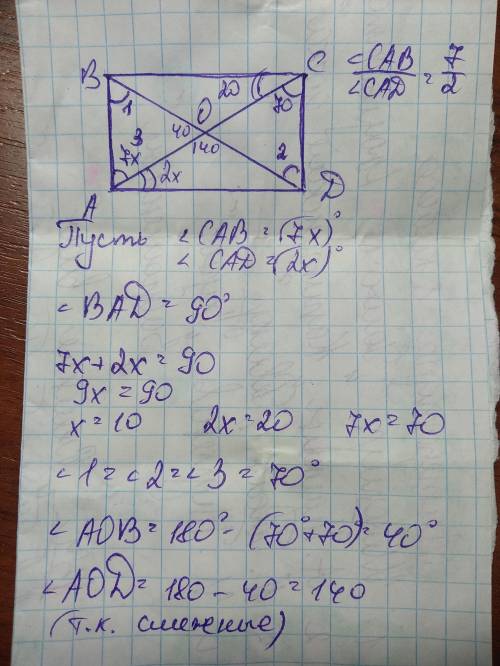 B C
∠CAB / ∠CAD = 7/2
20
1 O 70
3 40
140 2
7x 2x
A D
Пусть ∠CAB = (7x)°
∠CAD = (2x)°
∠BAD = 90°
7x + 2x = 90
9x = 90
x = 10 2x = 20 7x = 70
∠1 = ∠2 = ∠3 = 70°
∠AOB = 180° - (70° + 70) = 40°
∠AOD = 180 - 40 = 140
(т.к. смежные)